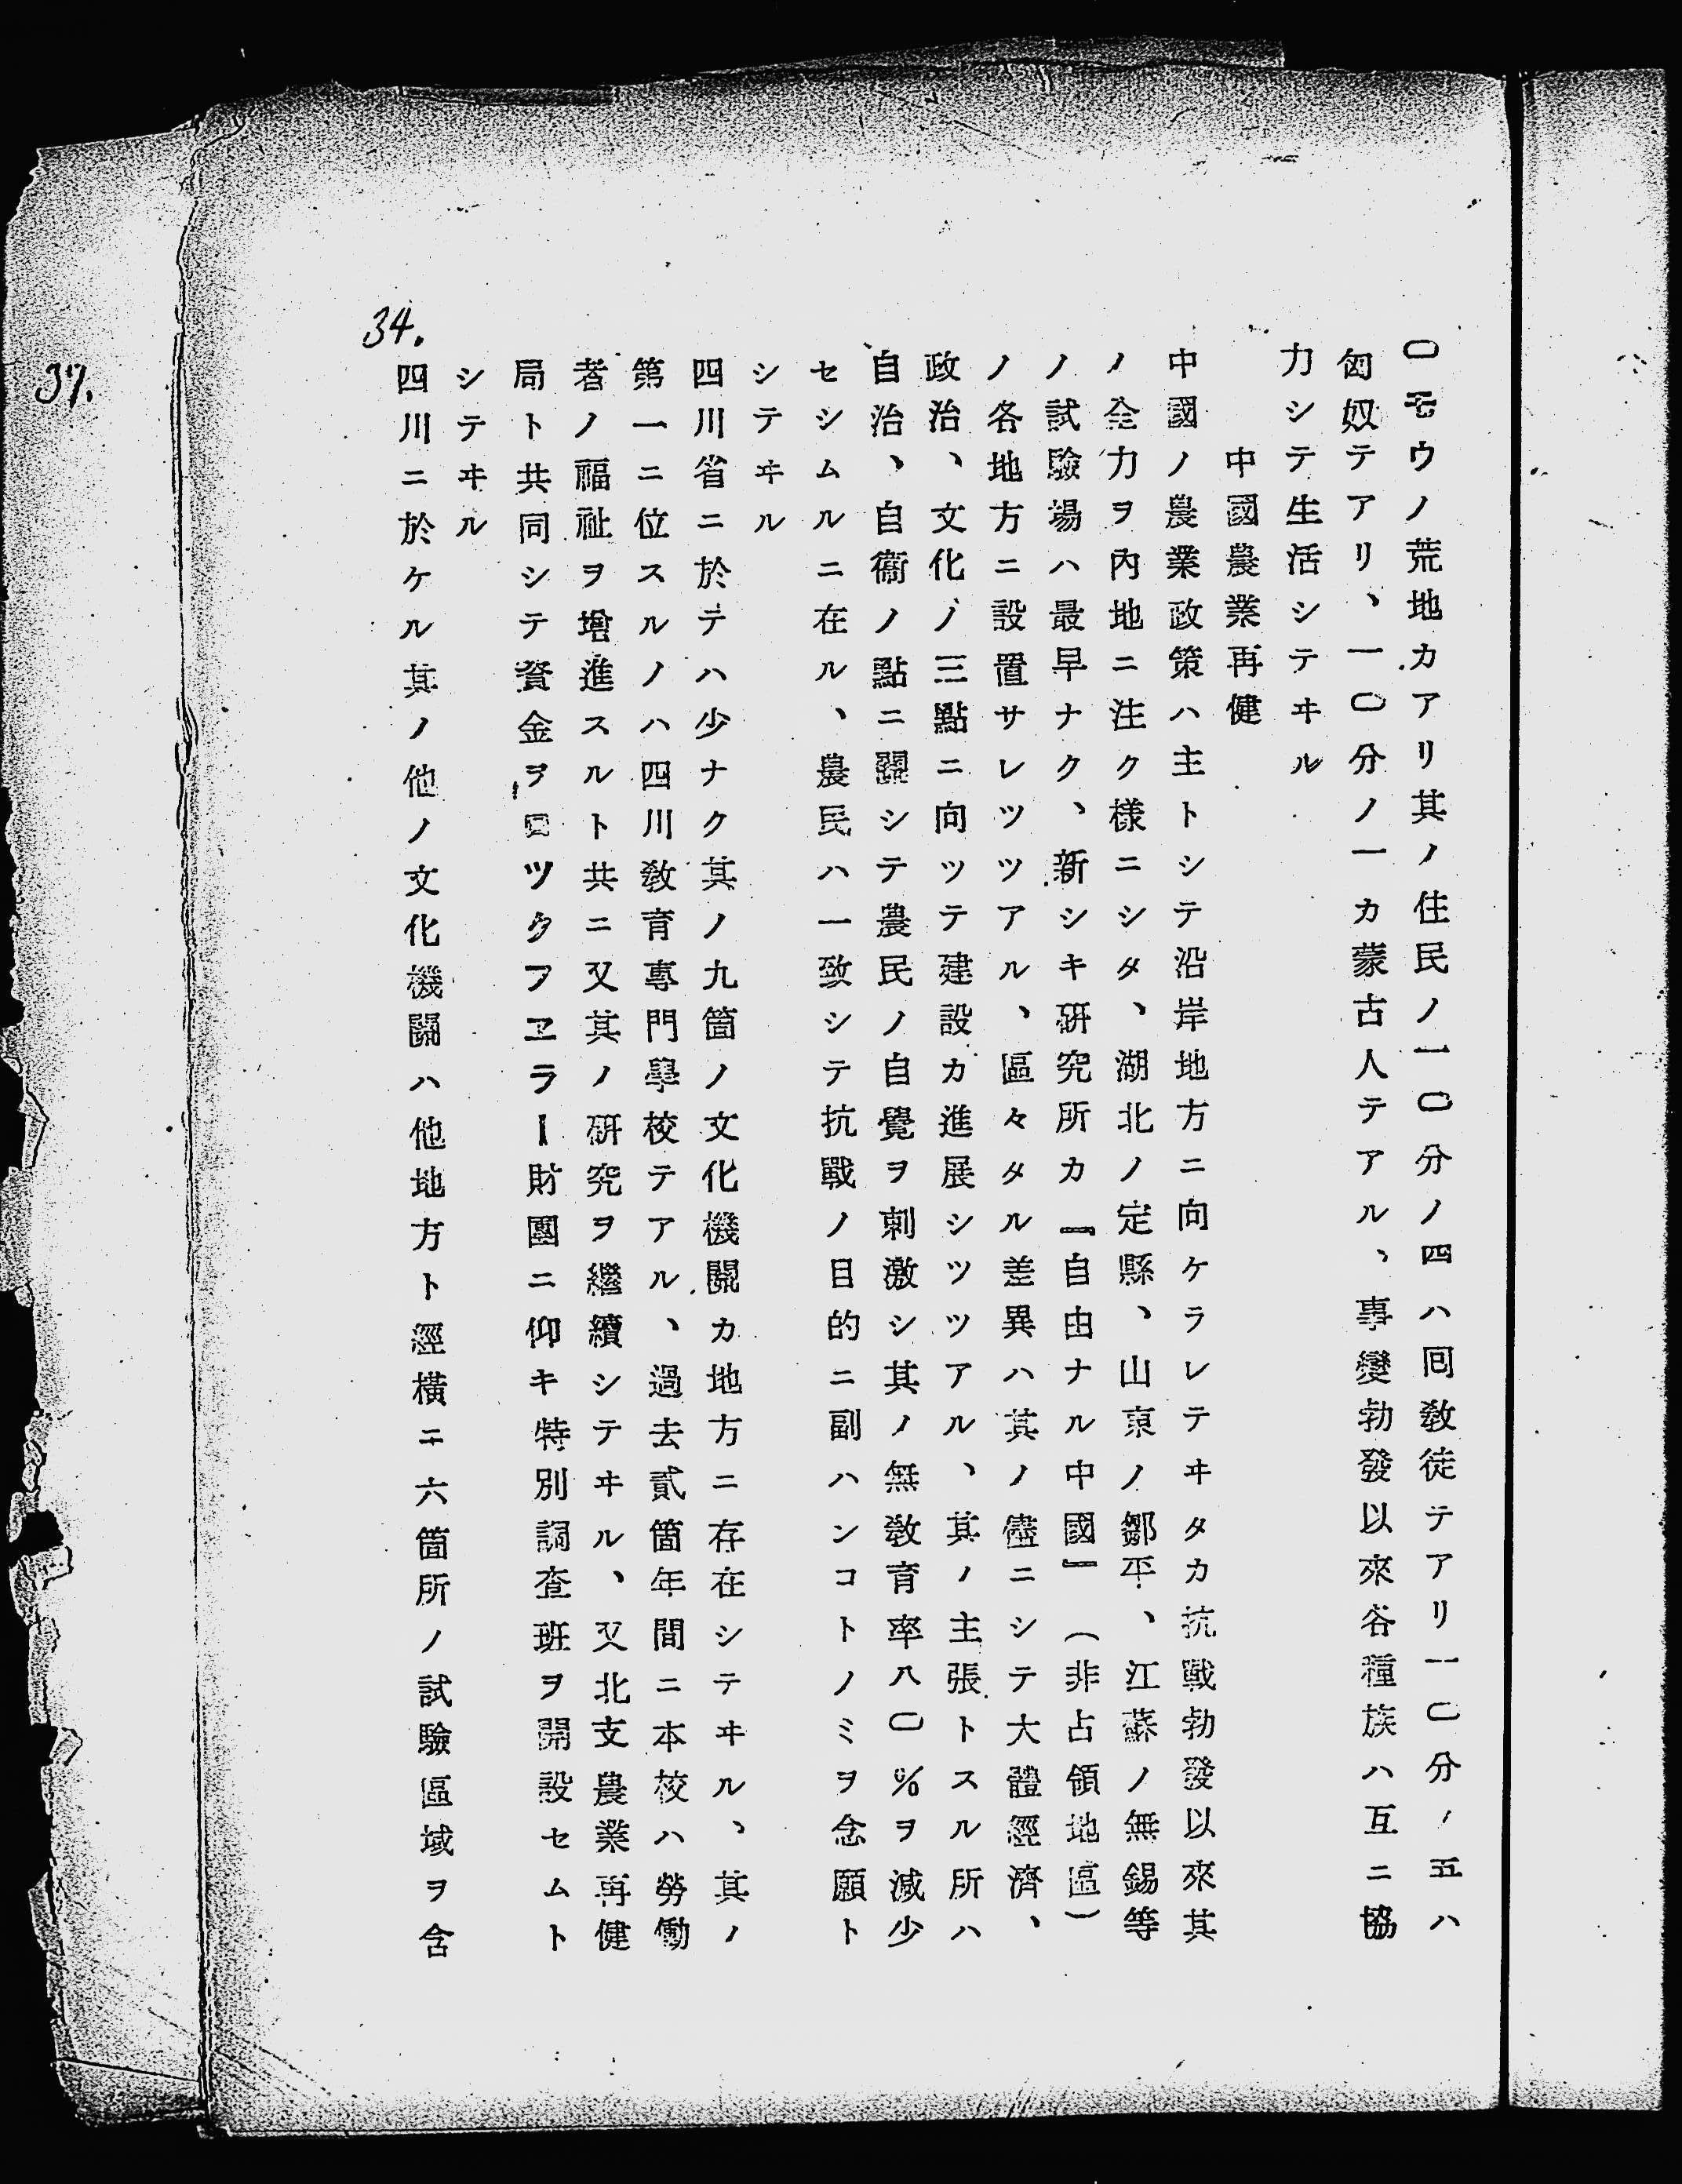 〇モウノ荒地カアリ其ノ住民ノ一〇分ノ四ハ囘敎徒テアリ一〇分ノ五ハ
匈奴テアリ、一〇分ノ一カ蒙古人テアル、事變勃發以來各種族ハ互ニ協
力シテ生活シテヰル
中國農業再健
中國ノ農業政策ハ主トシテ沿岸地方ニ向ケラレテヰタカ抗戰勃發以來其
ノ全力ヲ內地ニ注ク樣ニシタ、湖北ノ定縣、山東ノ鄒平、江蘇ノ無錫等
ノ試驗場ハ最早ナク、新シキ硏究所カ『自由ナル中國』(非占領地區)
ノ各地方ニ設置サレツツアル、區々タル差異ハ其ノ儘ニシテ大體經濟、
政治、文化ノ三點ニ向ツテ建設カ進展シツツアル、其ノ主張トスル所ハ
自治、自衞ノ點ニ關シテ農民ノ自覺ヲ刺激シ其ノ無敎育率八〇%ヲ減少
セシムルニ在ル、農民ハ一致シテ抗戰ノ目的ニ副ハンコトノミヲ念願ト
シテヰル
四川省ニ於テハ少ナク其ノ九箇ノ文化機關カ地方ニ存在シテヰル、其ノ
第一ニ位スルノハ四川敎育專門學校テアル、過去貳箇年間ニ本校ハ勞働
者ノ福祉ヲ增進スルト共ニ又其ノ硏究ヲ繼續シテヰル、又北支農業再健
局ト共同シテ資金ヲツクフヱラー財團ニ仰キ特別調査班ヲ開設セムト
シテヰル
四川ニ於ケル其ノ他ノ文化機關ハ他地方ト經橫ニ六箇所ノ試驗區域ヲ含
34.
37.